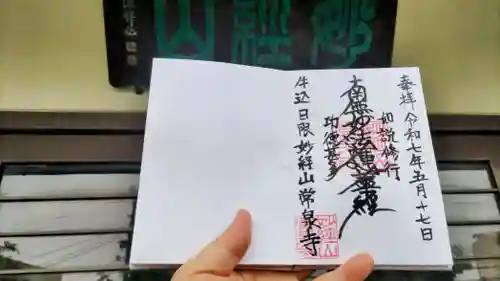 奉拝 令和七年五月十七日
如説修行
南無妙法蓮華経
功徳甚多
牛込日限 妙経山 常泉寺